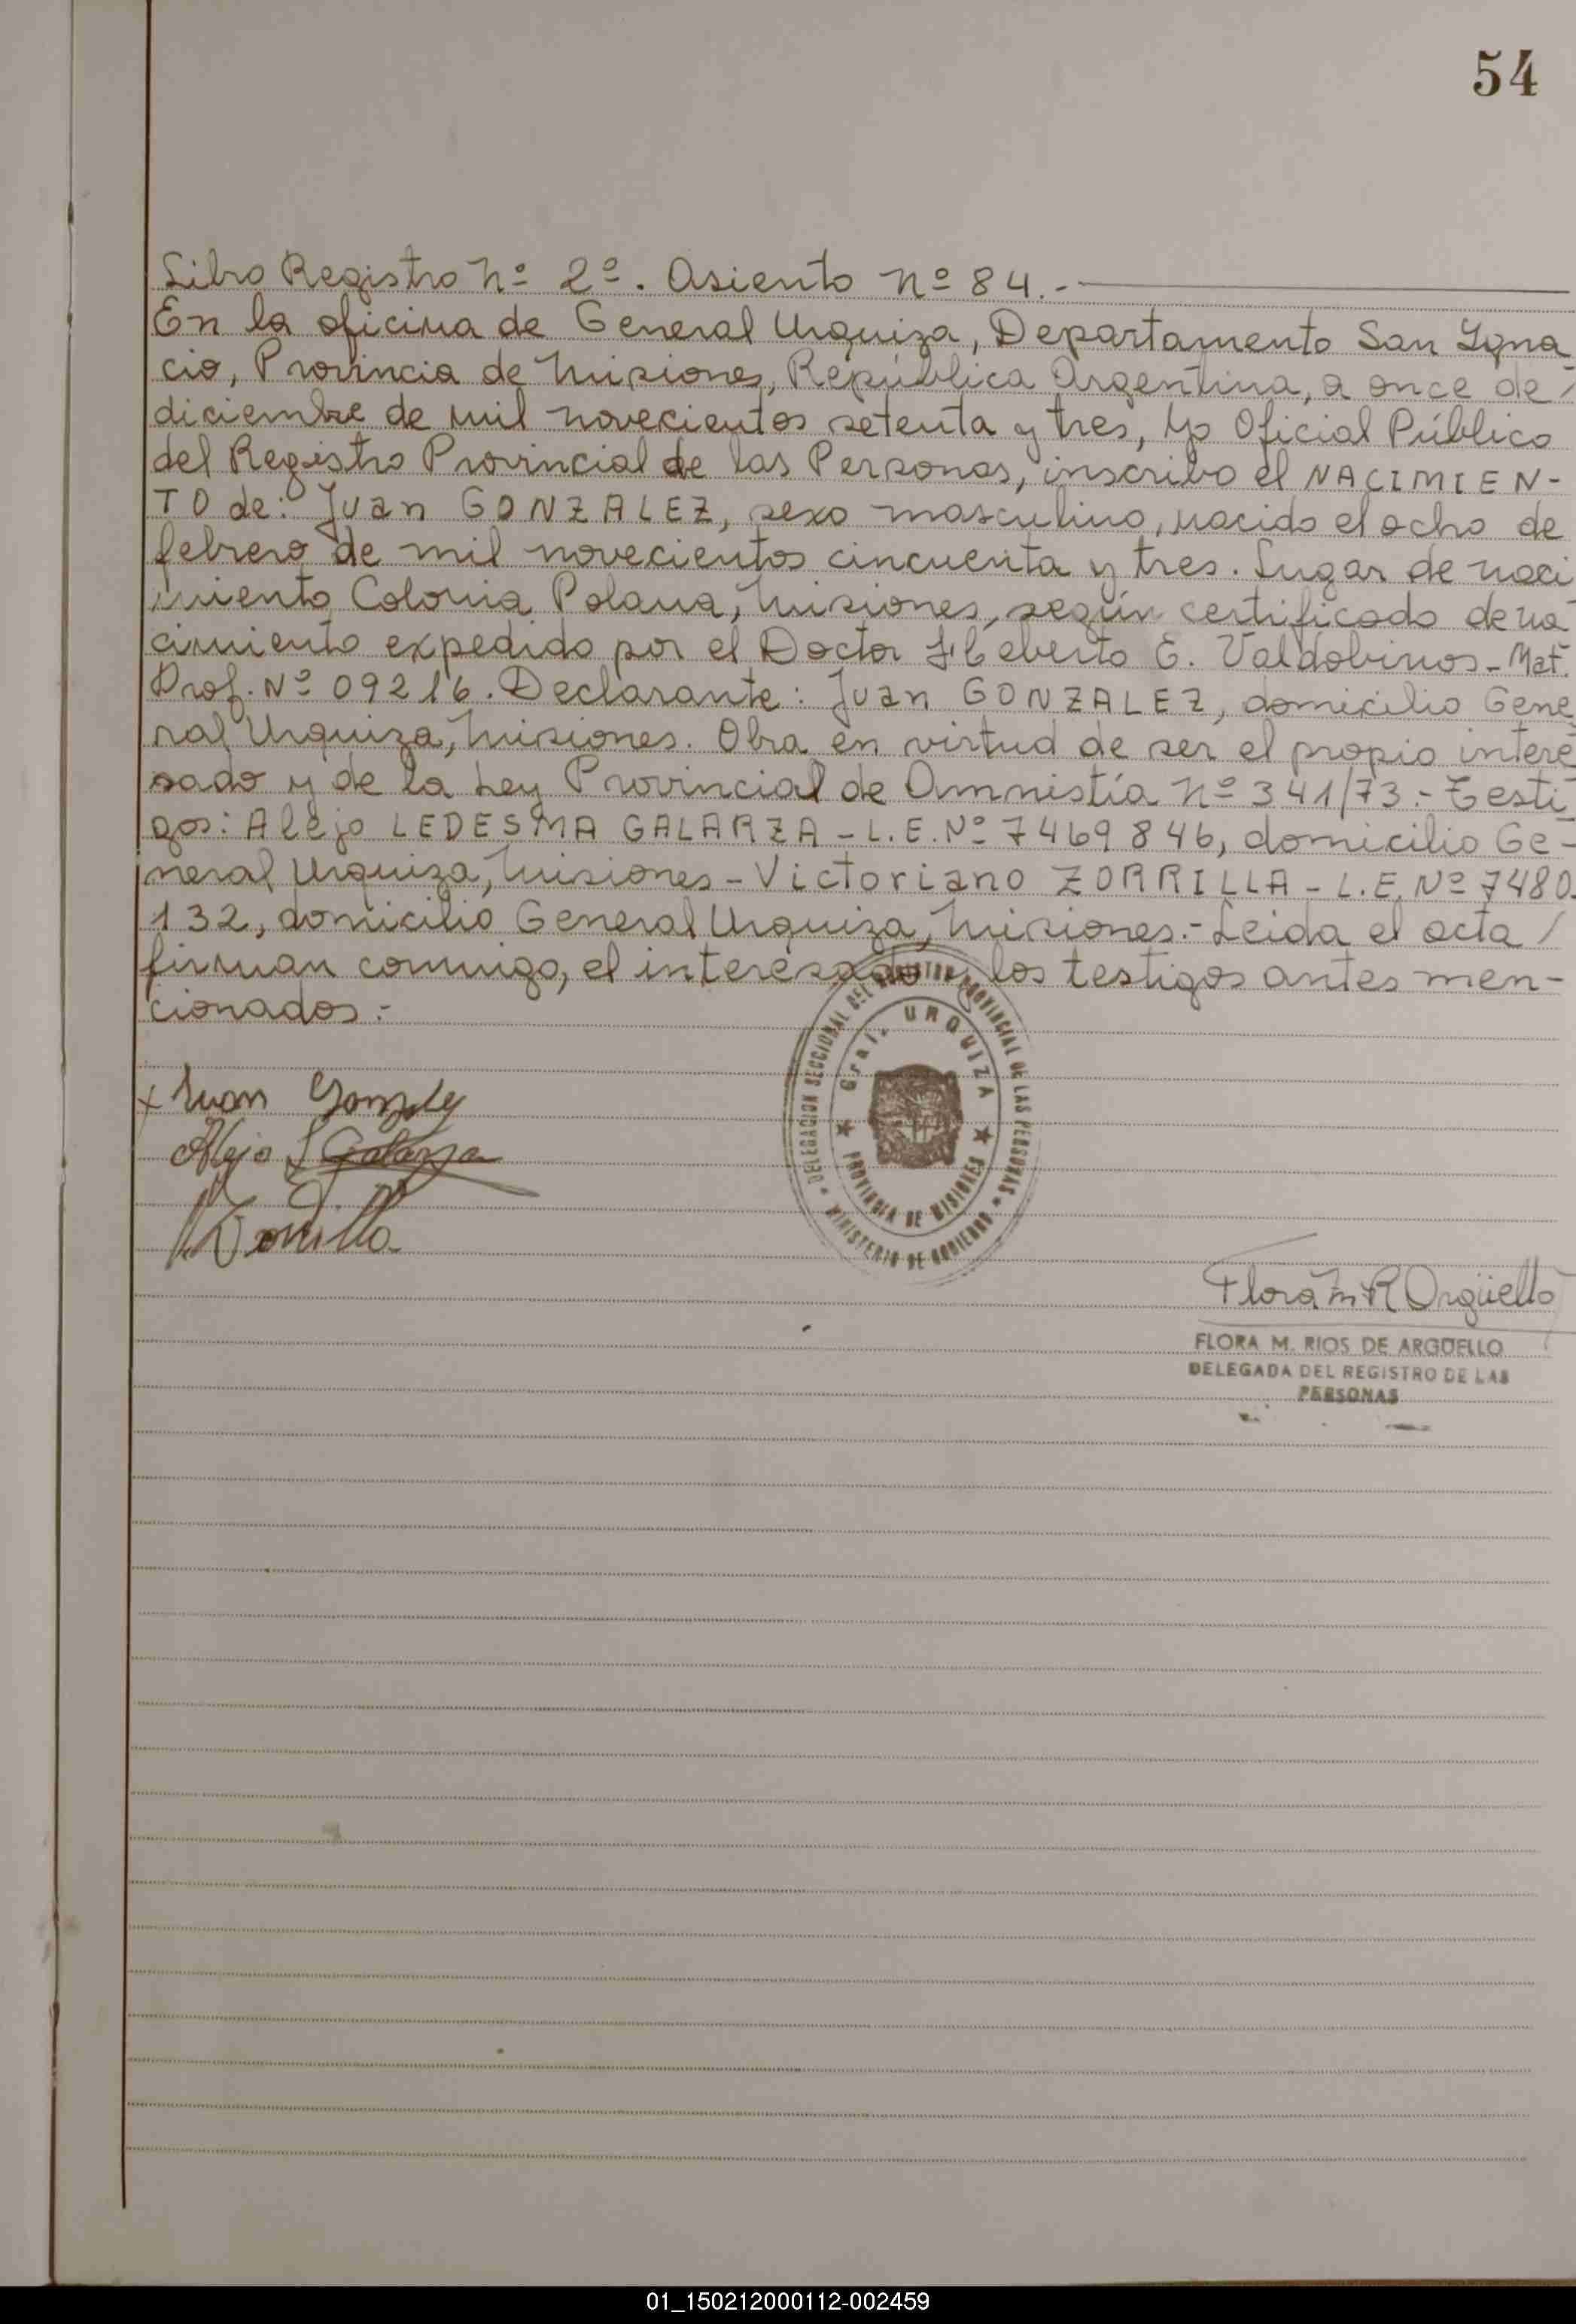 54
Libro Registro Nº 2º. Asiento Nº 84.-
En la oficina de General Urquiza, Departamento San Igna
cio, Provincia de Misiones, República Argentina, a once de /
diciembre de mil novecientos setenta y tres, yo Oficial Público
del Registro Provincial de las Personas, inscribo el NACIMIEN-
TO de: Juan GONZALEZ, sexo masculino, nacido el ocho de
febrero de mil novecientos cincuenta y tres. Lugar de naci
miento Colonia Polana, Misiones, según certificado de na
cimiento expedido por el Doctor E. Valdobinos - Mat.
Prof. Nº 09216. Declarante: Juan GONZALEZ, domicilio Gene
ral Urquiza, Misiones. Obra en virtud de ser el propio intere
sado y de la Ley Provincial de Amnistía Nº 341/73.- Testi
gos: Alejo LEDESMA GALARZA - L.E. Nº 7469846, domicilio Ge-
neral Urquiza, Misiones - Victoriano ZORRILLA - L.E. Nº 7480.
132, domicilio General Urquiza, Misiones.- Leida el acta /
firman conmigo, el interesado y los testigos antes men-
cionados.-
x Juan Gonzalez
Alejo L Galarza
V. Zorrilla
DELEGACION SECCIONAL DEL REGISTRO PROVINCIAL DE LAS PERSONAS
Gral. URQUIZA
PROVINCIA DE MISIONES
MINISTERIO DE GOBIERNO
Flora M R Argüello
FLORA M. RIOS DE ARGÜELLO
DELEGADA DEL REGISTRO DE LAS
PERSONAS
01_150212000112-002459